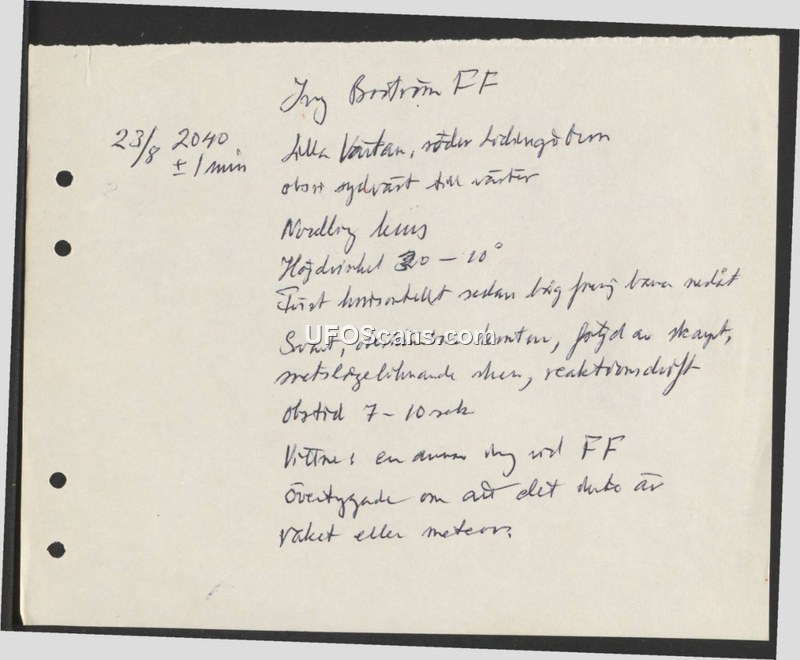 Ing Boström FF
23/8 2040
± 1 min
Lilla Värtan, söder Lidingöbron
obsr sydväst till väster
Nordlig kurs
Höjdvinkel 20 – 10°
Först horisontellt sedan båg bana nedåt
UFOScans.com
Svart, föjd av skarpt,
svetslågeliknande sken, reaktionsdrift
Obstid 7 – 10 sek
Vittne: en annan ing vid FF
Övertygade om att det är
raket eller meteor.